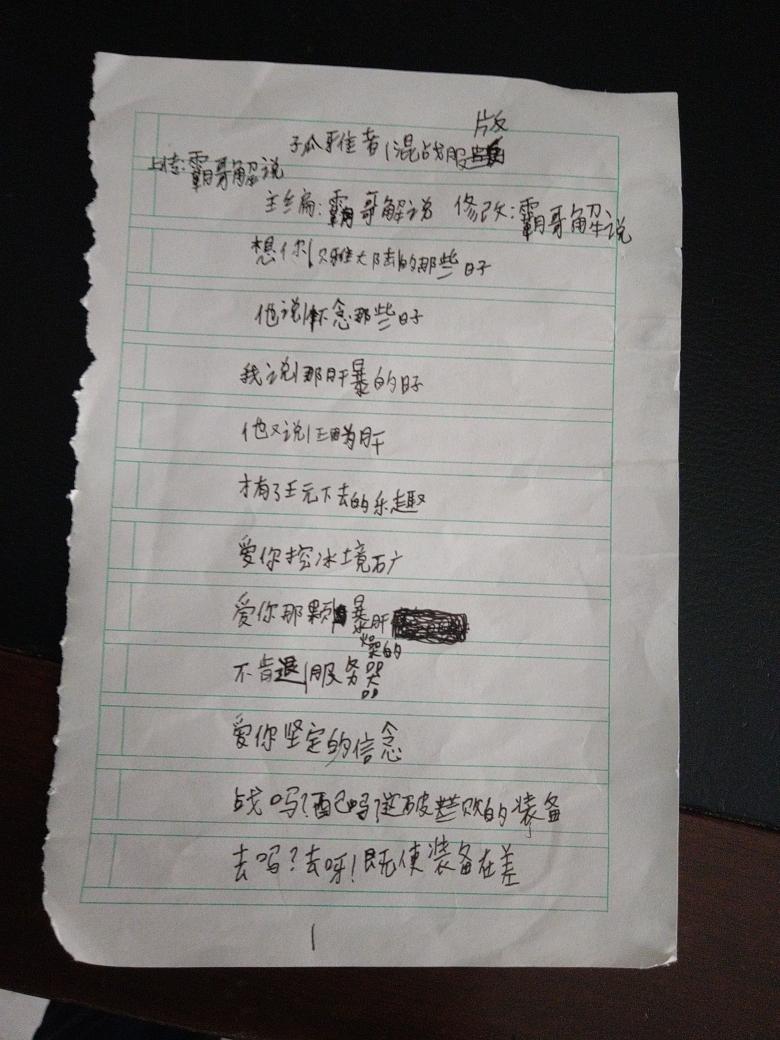 孤雅者混战服版
上传:霸哥解说
主编:霸哥解说 修改:霸哥解说
想你贝雅大陆的那些日子
他说怀念那些日子
我说那肝暴的日子
他又说正因为肝
才有了玩下去的乐趣
爱你挖冰境石广
爱你那颗暴肝
爆的
不肯退服务器
爱你坚定的信念
战吗?配吗?这破烂败的装备
去吗?去呀!既使装备在差
1